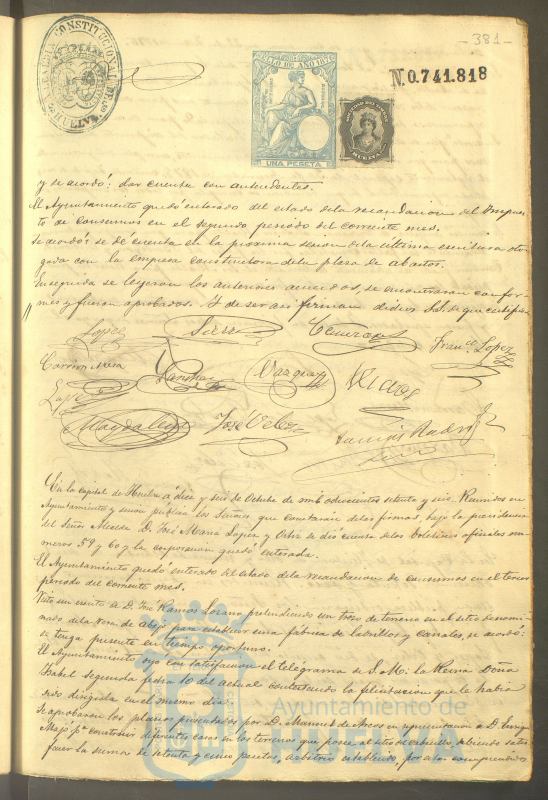 381
ALCALDIA CONSTITUCIONAL DE HUELVA
SELLO 11º AÑO 1876
UNA PESETA
HUELVA
N.0.741.818
y se acordó: dar cuenta con antecedentes.
El Ayuntamiento quedó enterado del estado de la recaudacion del Impues
to de consumos en el segundo periodo del corriente mes.
Se acordó: se dé cuenta en la proxima sesion de la última escritura otor
gada con la empresa constructora de la plaza de abastos.
Enseguida se leyeron los anteriores acuerdos, se encontraron confor
mes y fueron aprobados. Y de ser asi firman dichos S.S. de que certifico
Lopez
Franco Lopez
Carrion
Vazquez
Magdaleno
José Velez
En la capital de Huelva á diez y seis de Octubre de mil ochocientos setenta y seis. Reunidos en
Ayuntamiento y sesion publica los Señores que constaran de las firmas, bajo la presidencia
del Señor Alcalde D. José Maria Lopez y Ortiz se dió cuenta de los Boletines oficiales nu
meros 59 y 60 y la corporacion quedó enterada.
El Ayuntamiento quedó enterado del estado de la recaudacion de consumos en el tercer
periodo del corriente mes.
Visto un escrito de D. José Ramos Lozano pretendiendo un trozo de terreno en el sitio denomi
nado de la de abajo para establecer una fábrica de ladrillos y canales, se acordó:
se tenga presente en tiempo oportuno.
El Ayuntamiento oyó con satisfaccion el telégrama de S. M. la Reina Doña
Isabel segunda fecha 10 del actual contestando la felicitacion que le habia
sido dirigida en el mismo dia.
Se aprobaron los planos presentados por D. Manuel de Arcos en representacion de D. Enrique
Mojó pª construir diferentes casas en los terrenos que posee al sitio de debiendo satis
facer la suma de setenta y cinco pesetas, arbitrio establecido, por estar comprendidos
Ayuntamiento de
HUELVA